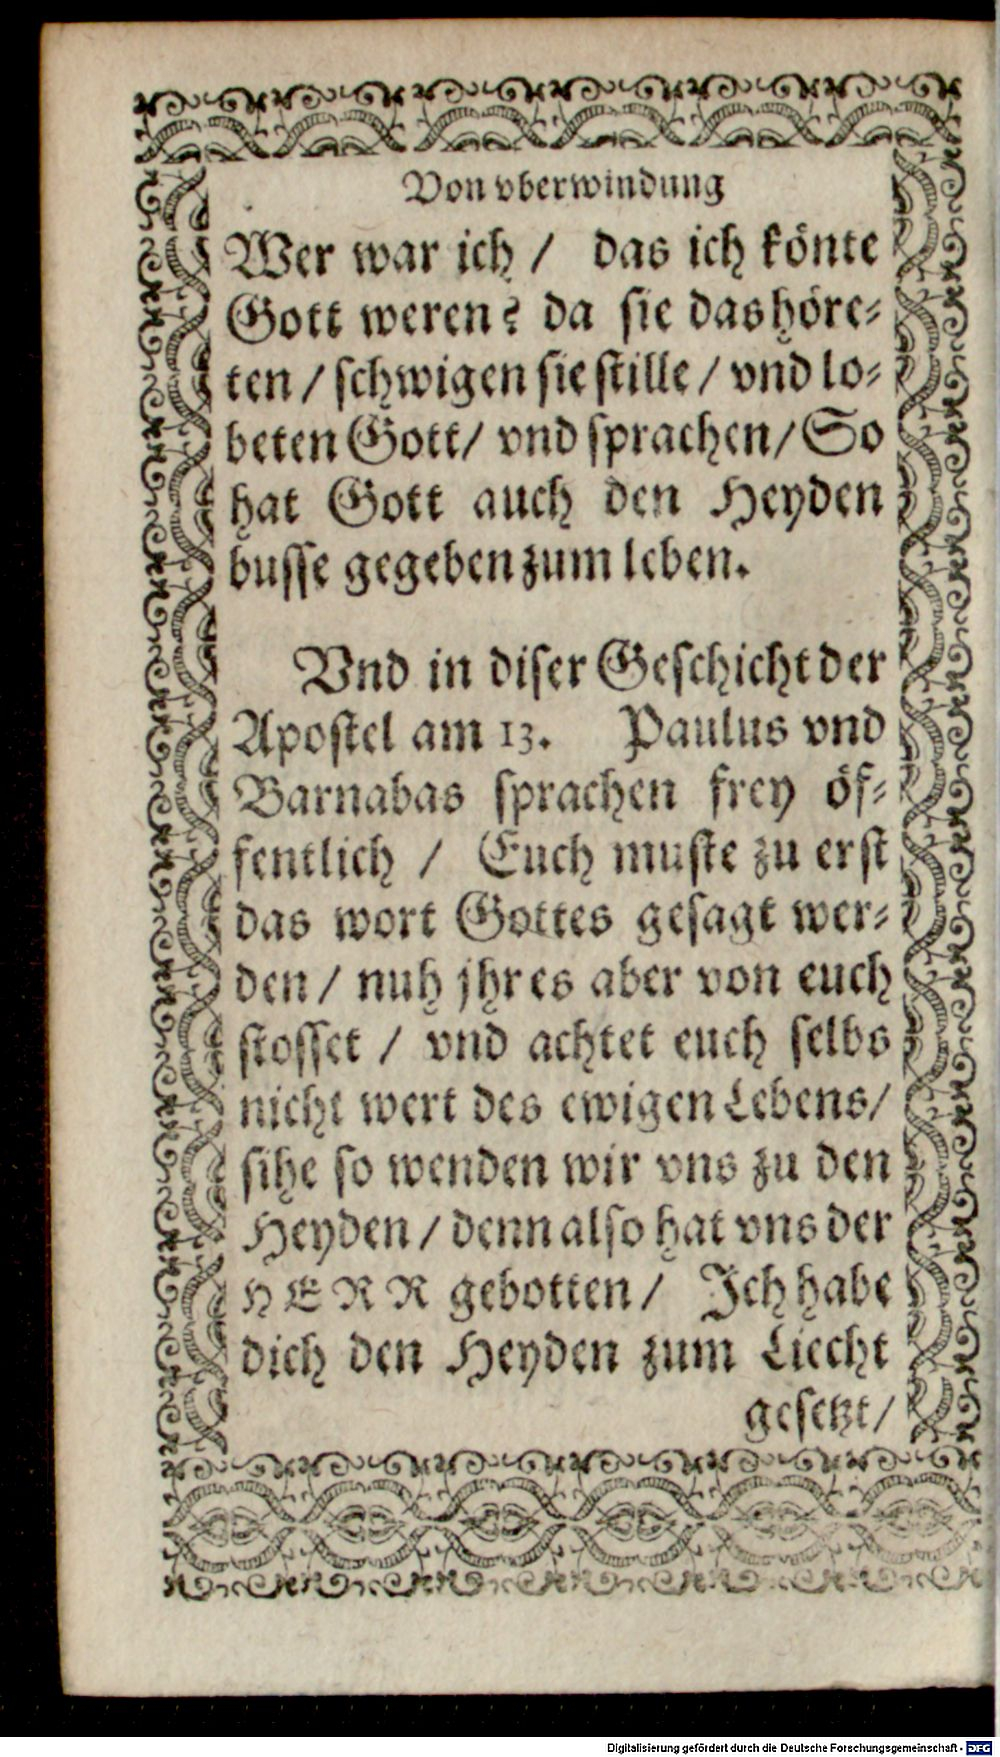 Von vberwindung
Wer war ich / das ich könte
Gott weren? da sie das höre-
ten / schwigen sie stille / vnd lo-
beten Gott / vnd sprachen / So
hat Gott auch den Heyden
busse gegeben zum leben.
Vnd in diser Geschicht der
Apostel am 13. Paulus vnd
Barnabas sprachen frey öf-
fentlich / Euch muste zu erst
das wort Gottes gesagt wer-
den / nuh jhr es aber von euch
stosset / vnd achtet euch selbs
nicht wert des ewigen Lebens /
sihe so wenden wir vns zu den
Heyden / denn also hat vns der
HERR gebotten / Ich habe
dich den Heyden zum Liecht
gesetzt /
Digitalisierung gefördert durch die Deutsche Forschungsgemeinschaft - DFG